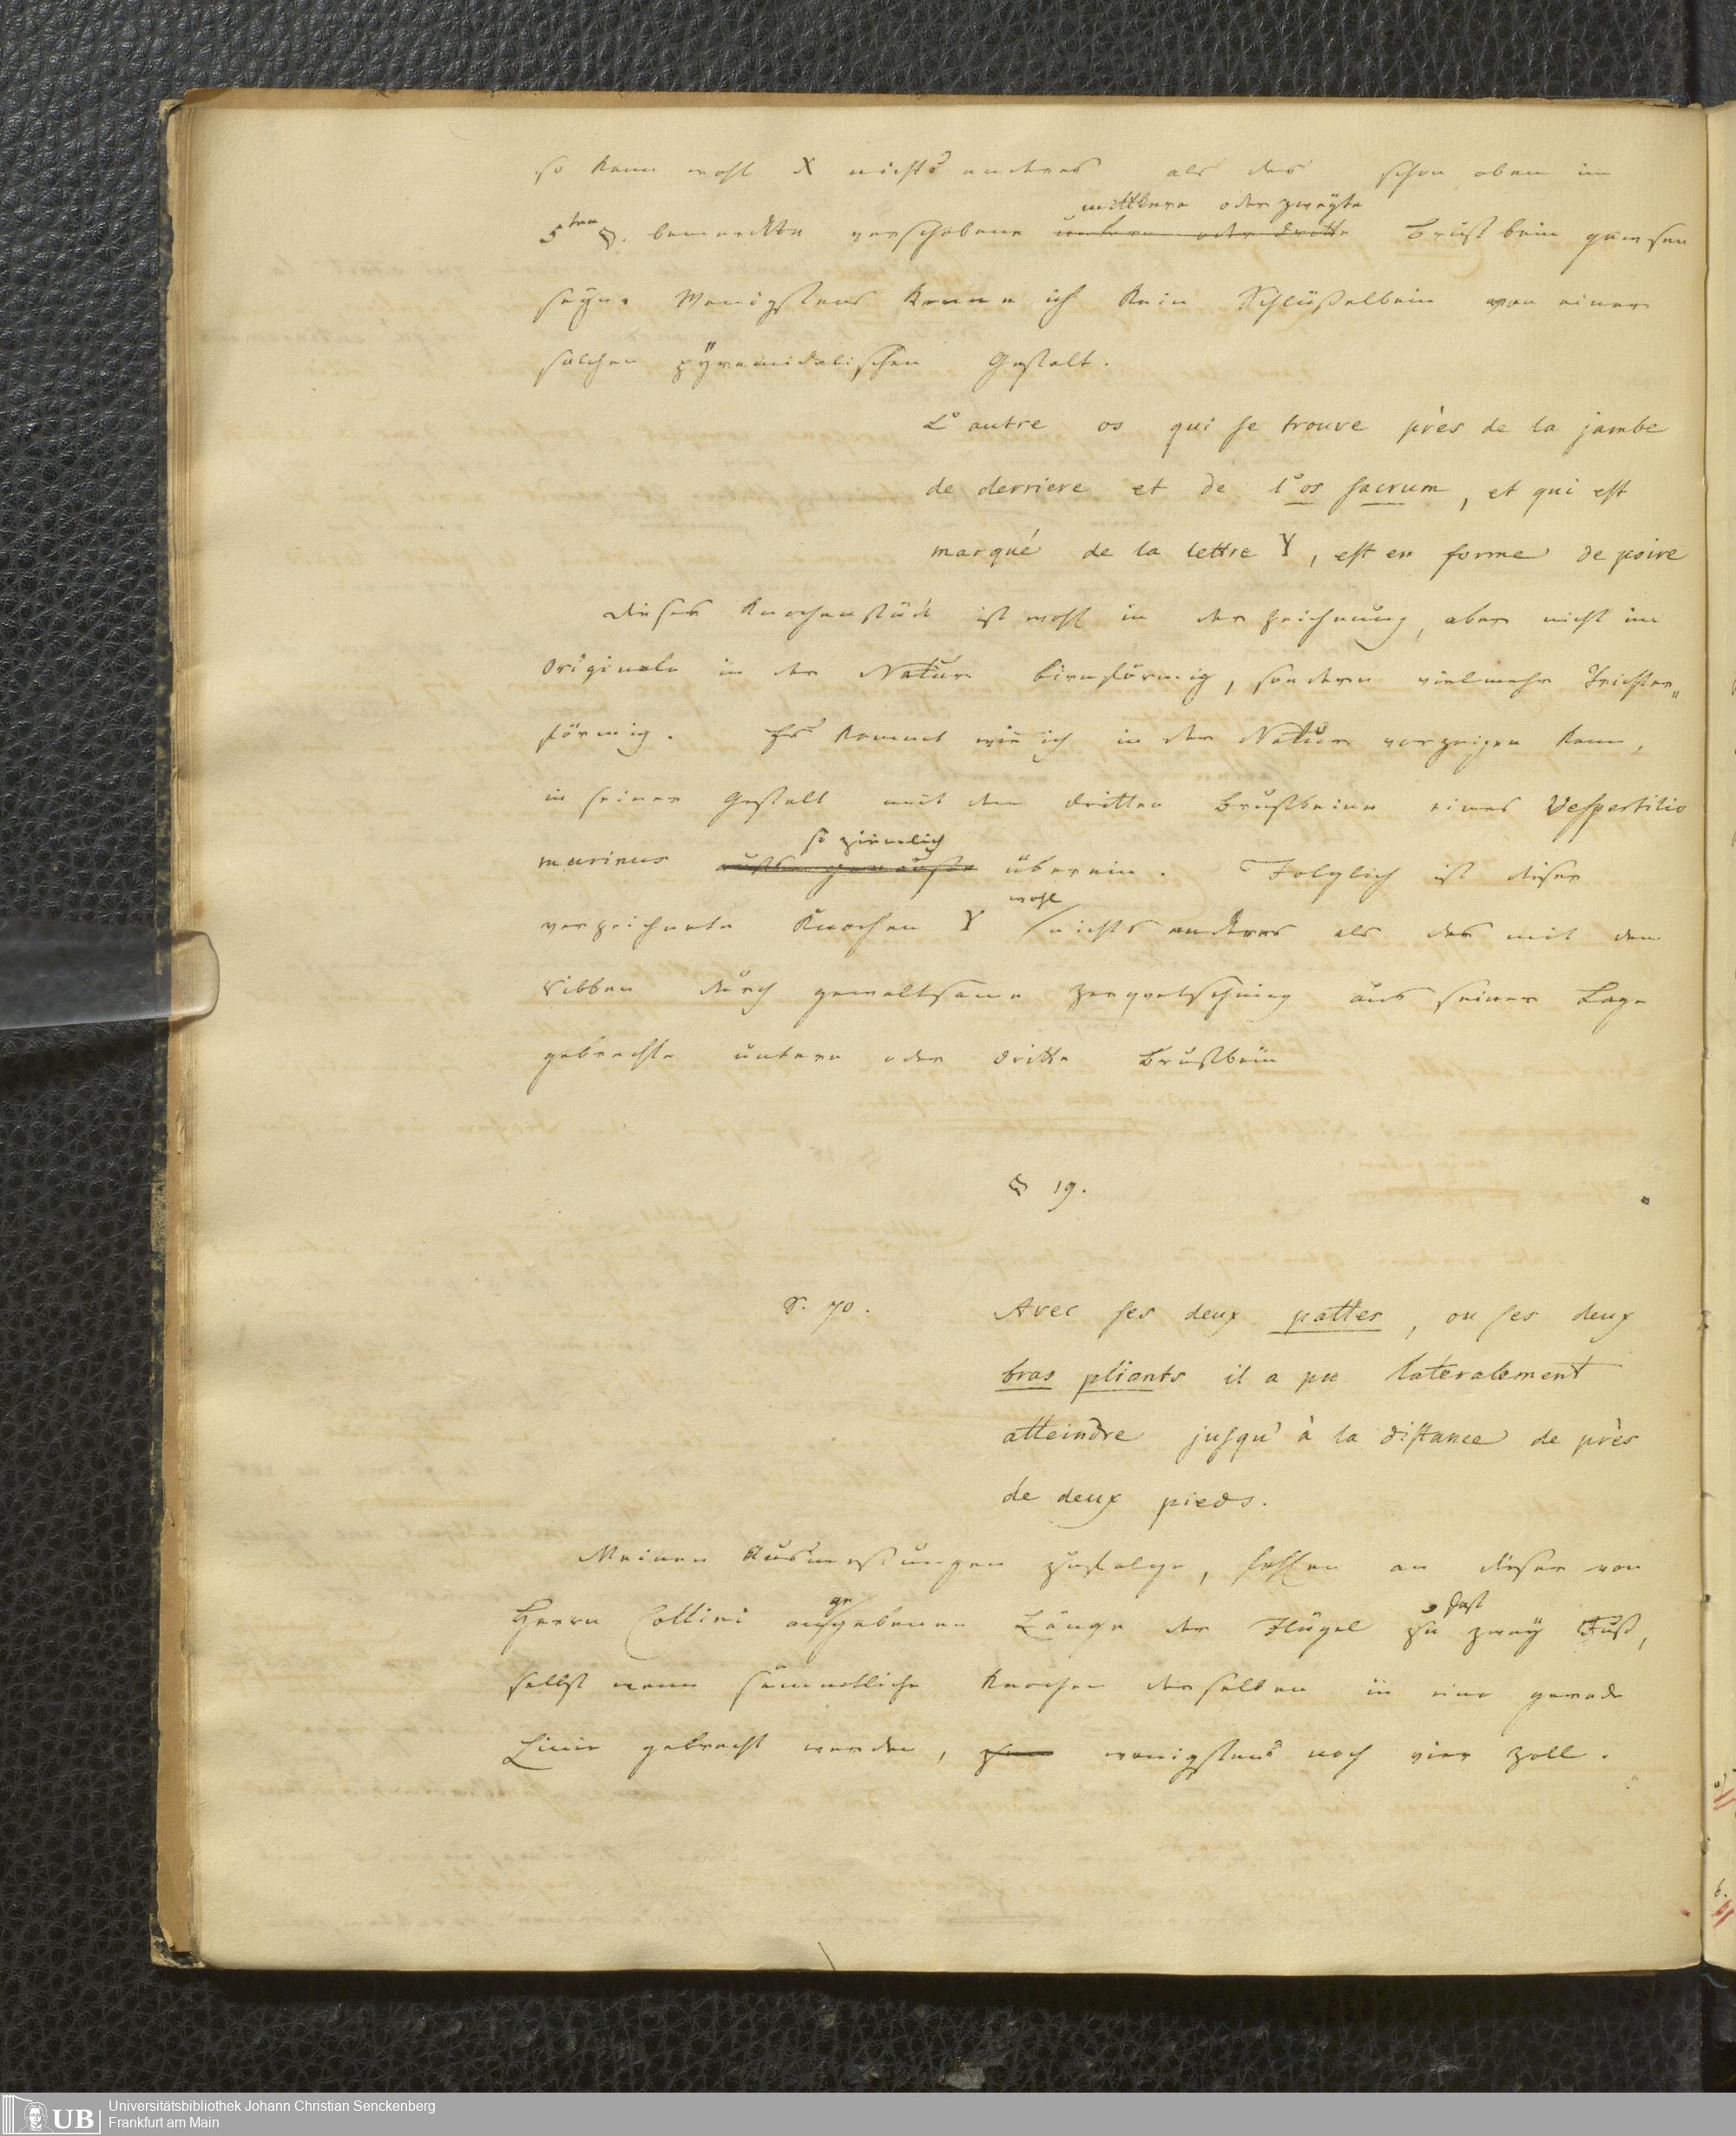 so kann wohl X nichts anderes als das schon oben im
mittlere oder zweyte
5ten §. bemerkte verschobene untere oder dritte Brustbein gewesen
seyn. Wenigstens kenne ich kein Schlüßelbein von einer
solchen pÿramidalischen Gestalt.
L'autre os qui se trouve près de la jambe
de derriere et de l'os sacrum, et qui est
marqué de la lettre Y, est en forme de poire
Dieses Knochenstück ist wohl in der Zeichnung, aber nicht im
Originale in der Natur birnförmig, sondern vielmehr Trichter„
förmig. Es kommt wie ich in der Natur vorzeigen kann,
in seiner Gestalt mit dem dritten Brustbeine eines Vespertilio
so ziemlich
murinus aufs genauste überein. Folglich ist dieser
wohl
verzeichnete Knochen Y nichts anderes als das mit den
Ribben durch gewaltsame Zerquetschung aus seiner Lage
gebrachte untere oder dritte Brustbein
§ 19.
S. 70. Avec ses deux pattes, ou ses deux
bras pliants il a pu lateralement
atteindre jusqu'à la distance de près
de deux pieds.
Meinen Ausmessungen zufolge, fehlen an dieser von
ge fast
Herrn Collini angebenen Länge der Flügel zu zwey Fuß,
selbst wenn sämmtliche Knochen derselben in eine gerade
Linie gebracht werden, wenigstens noch vier Zoll.
UB Universitätsbibliothek Johann Christian Senckenberg
Frankfurt am Main